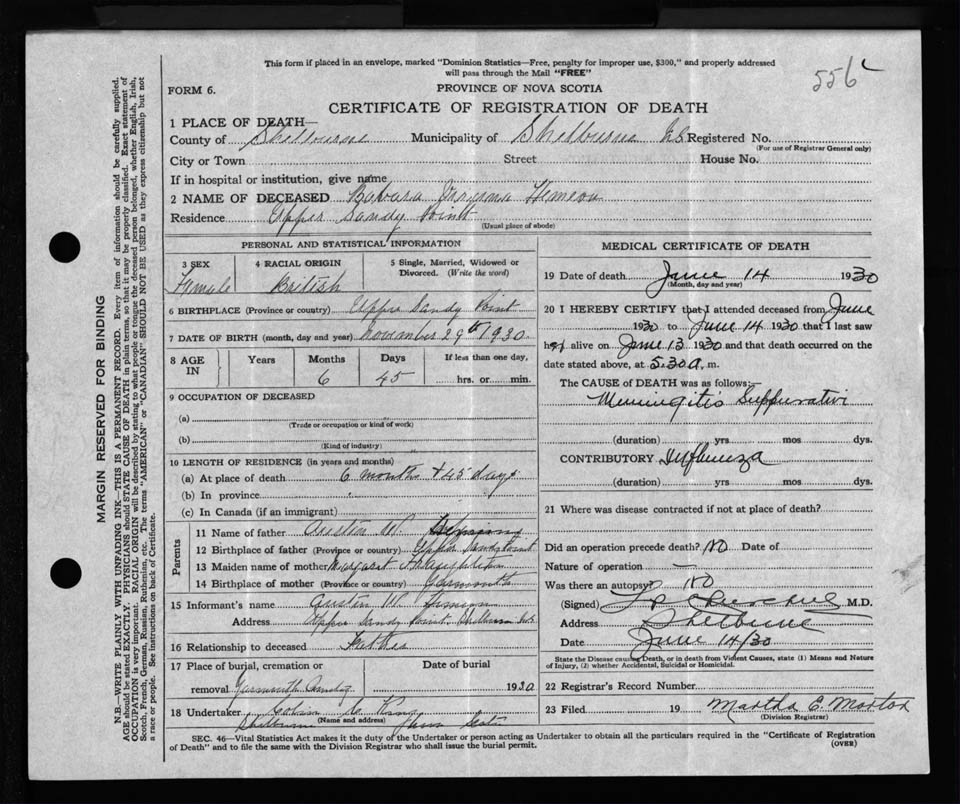 This form if placed in an envelope, marked "Dominion Statistics—Free, penalty for improper use, $300," and properly addressed
will pass through the Mail "FREE"
556
FORM 6.
PROVINCE OF NOVA SCOTIA
CERTIFICATE OF REGISTRATION OF DEATH
1 PLACE OF DEATH—
County of Shelburne Municipality of Shelburne N.S. Registered No.
(For use of Registrar General only)
City or Town Street House No.
If in hospital or institution, give name
2 NAME OF DECEASED
Residence Upper Sandy Point
(Usual place of abode)
PERSONAL AND STATISTICAL INFORMATION
3 SEX 4 RACIAL ORIGIN 5 Single, Married, Widowed or
Divorced. (Write the word)
Female British
6 BIRTHPLACE (Province or country) Upper Sandy Point
7 DATE OF BIRTH (month, day and year) November 29th 1930
8 AGE IN Years Months Days If less than one day,
6 45 hrs. or min.
9 OCCUPATION OF DECEASED
(a)
(Trade or occupation or kind of work)
(b)
(Kind of industry)
10 LENGTH OF RESIDENCE (in years and months)
(a) At place of death 6 months + 45 days
(b) In province
(c) In Canada (if an immigrant)
Parents
11 Name of father Austin W.
12 Birthplace of father (Province or country) Upper Sandy Point
13 Maiden name of mother Margaret
14 Birthplace of mother (Province or country) Yarmouth
15 Informant's name Austin W.
Address Upper Sandy Point Shelburne
16 Relationship to deceased Father
17 Place of burial, cremation or Date of burial
removal Yarmouth 1930
18 Undertaker
(Name and address)
Shelburne
MEDICAL CERTIFICATE OF DEATH
19 Date of death June 14 1930
(Month, day and year)
20 I HEREBY CERTIFY that I attended deceased from June
1930 to June 14 1930 that I last saw
her alive on June 13 1930 and that death occurred on the
date stated above, at 5.30 a. m.
The CAUSE OF DEATH was as follows:—
Meningitis Suppurativi
(duration) yrs mos dys.
CONTRIBUTORY Influenza
(duration) yrs mos dys.
21 Where was disease contracted if not at place of death?
Did an operation precede death? No Date of
Nature of operation —
Was there an autopsy No
(Signed) M.D.
Address Shelburne
Date June 14/30
State the Disease causing Death, or in death from Violent Causes, state (1) Means and Nature
of Injury, (2) whether Accidental, Suicidal or Homicidal.
22 Registrar's Record Number
23 Filed 19 Martha E. Morton
(Division Registrar)
SEC. 46—Vital Statistics Act makes it the duty of the Undertaker or person acting as Undertaker to obtain all the particulars required in the "Certificate of Registration
of Death" and to file the same with the Division Registrar who shall issue the burial permit. (OVER)
MARGIN RESERVED FOR BINDING
N.B.—WRITE PLAINLY WITH UNFADING INK—THIS IS A PERMANENT RECORD. Every item of information should be carefully supplied.
AGE should be stated EXACTLY. PHYSICIANS should STATE CAUSE OF DEATH in plain terms, so that it may be properly classified. Exact statement of
OCCUPATION is very important. RACIAL ORIGIN will be described by stating to what people or tongue the deceased person belonged, whether English, Irish,
Scotch, French, German, Russian, Ruthenian, etc. The terms "AMERICAN" or "CANADIAN" SHOULD NOT BE USED as they express citizenship but not
a race or people. See instructions on back of Certificate.